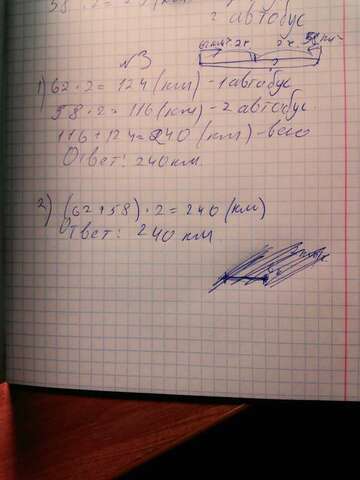 58 · 2 =
2 автобус
№3
62 км/ч 2ч. 2ч. 58 км/ч
?
1) 62 · 2 = 124 (км) - 1 автобус
58 · 2 = 116 (км) - 2 автобус.
116 + 124 = 240 (км) - всего
Ответ: 240 км.
2) (62 + 58) · 2 = 240 (км)
Ответ: 240 км